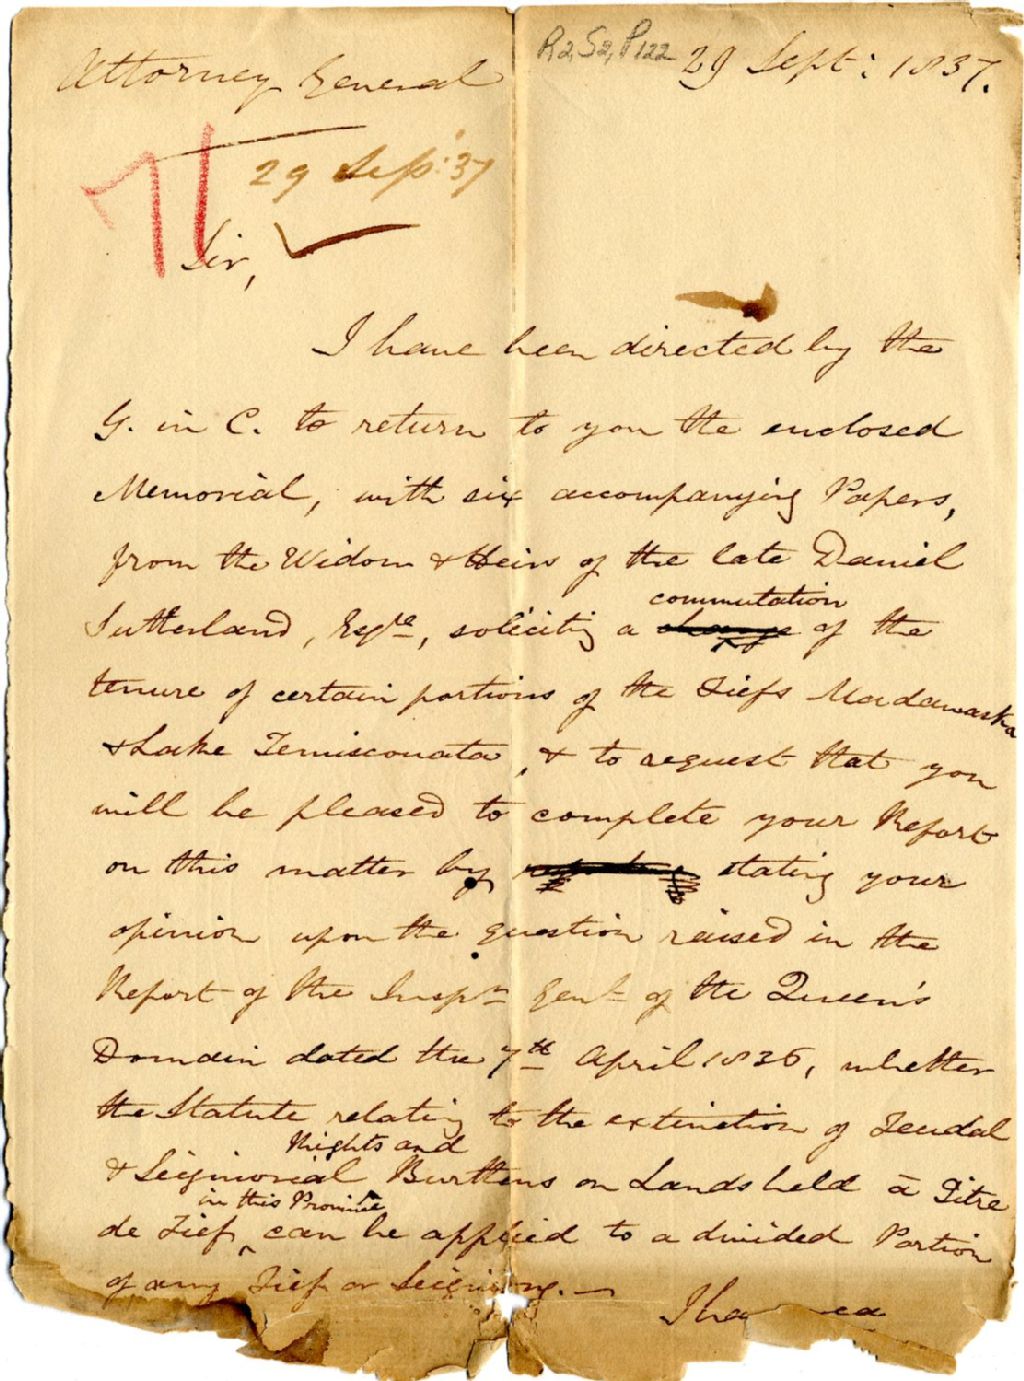 R2, S2, P122 29 Sept: 1837.
Attorney General
29 Sep: 37
Sir,
I have been directed by the
G. in C. to return to you the enclosed
Memorial, with six accompanying Papers,
from the Widow & Heirs of the late Daniel
commutation
Sutherland, Esqre, soliciting a change of the
tenure of certain portions of the Fiefs Madawaska
& Lake Temisconata, & to request that you
will be pleased to complete your Report
on this matter by stating your
opinion upon the question raised in the
Report of the Inspr Genl of the Queen's
Domain dated the 7th April 1836, whether
the Statute relating to the extinction of Feudal
Rights and
& Seigniorial Burthens on Lands held à Titre
in this Province
de Fief, can be applied to a divided Portion
of any Fief or Seigniory. —
I ha